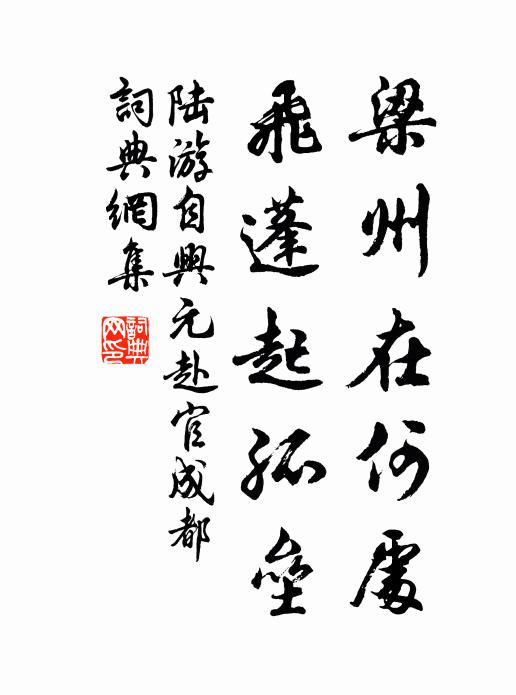 梁州在何處
飛蓬起孤壘
陆游自興元赴官成都
詞典網集
詞典网印